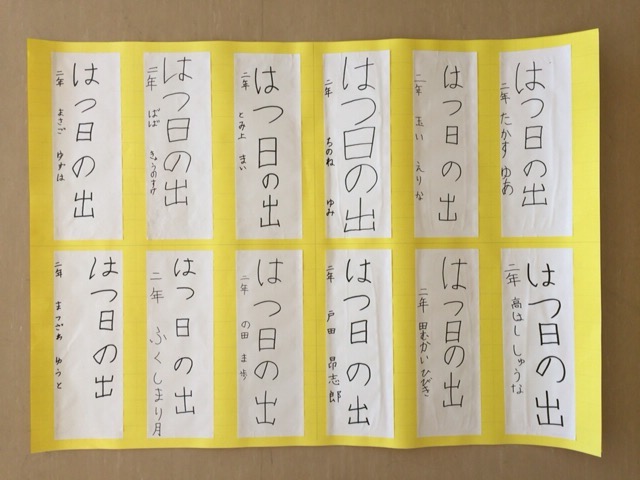 はつ日の出
二年 たかす ゆあ
はつ日の出
二年 玉い えりな
はつ日の出
二年 ちのね ゆみ
はつ日の出
二年 とみ上 まい
はつ日の出
二年 ばば きょうのすけ
はつ日の出
二年 よさご ゆかは
はつ日の出
二年 高はし しゅうな
はつ日の出
二年 田むかい ひびき
はつ日の出
二年 戸田 昂志郎
はつ日の出
二年 の田 ま歩
はつ日の出
二年 ふくしま り月
はつ日の出
二年 まつざき ゆうと